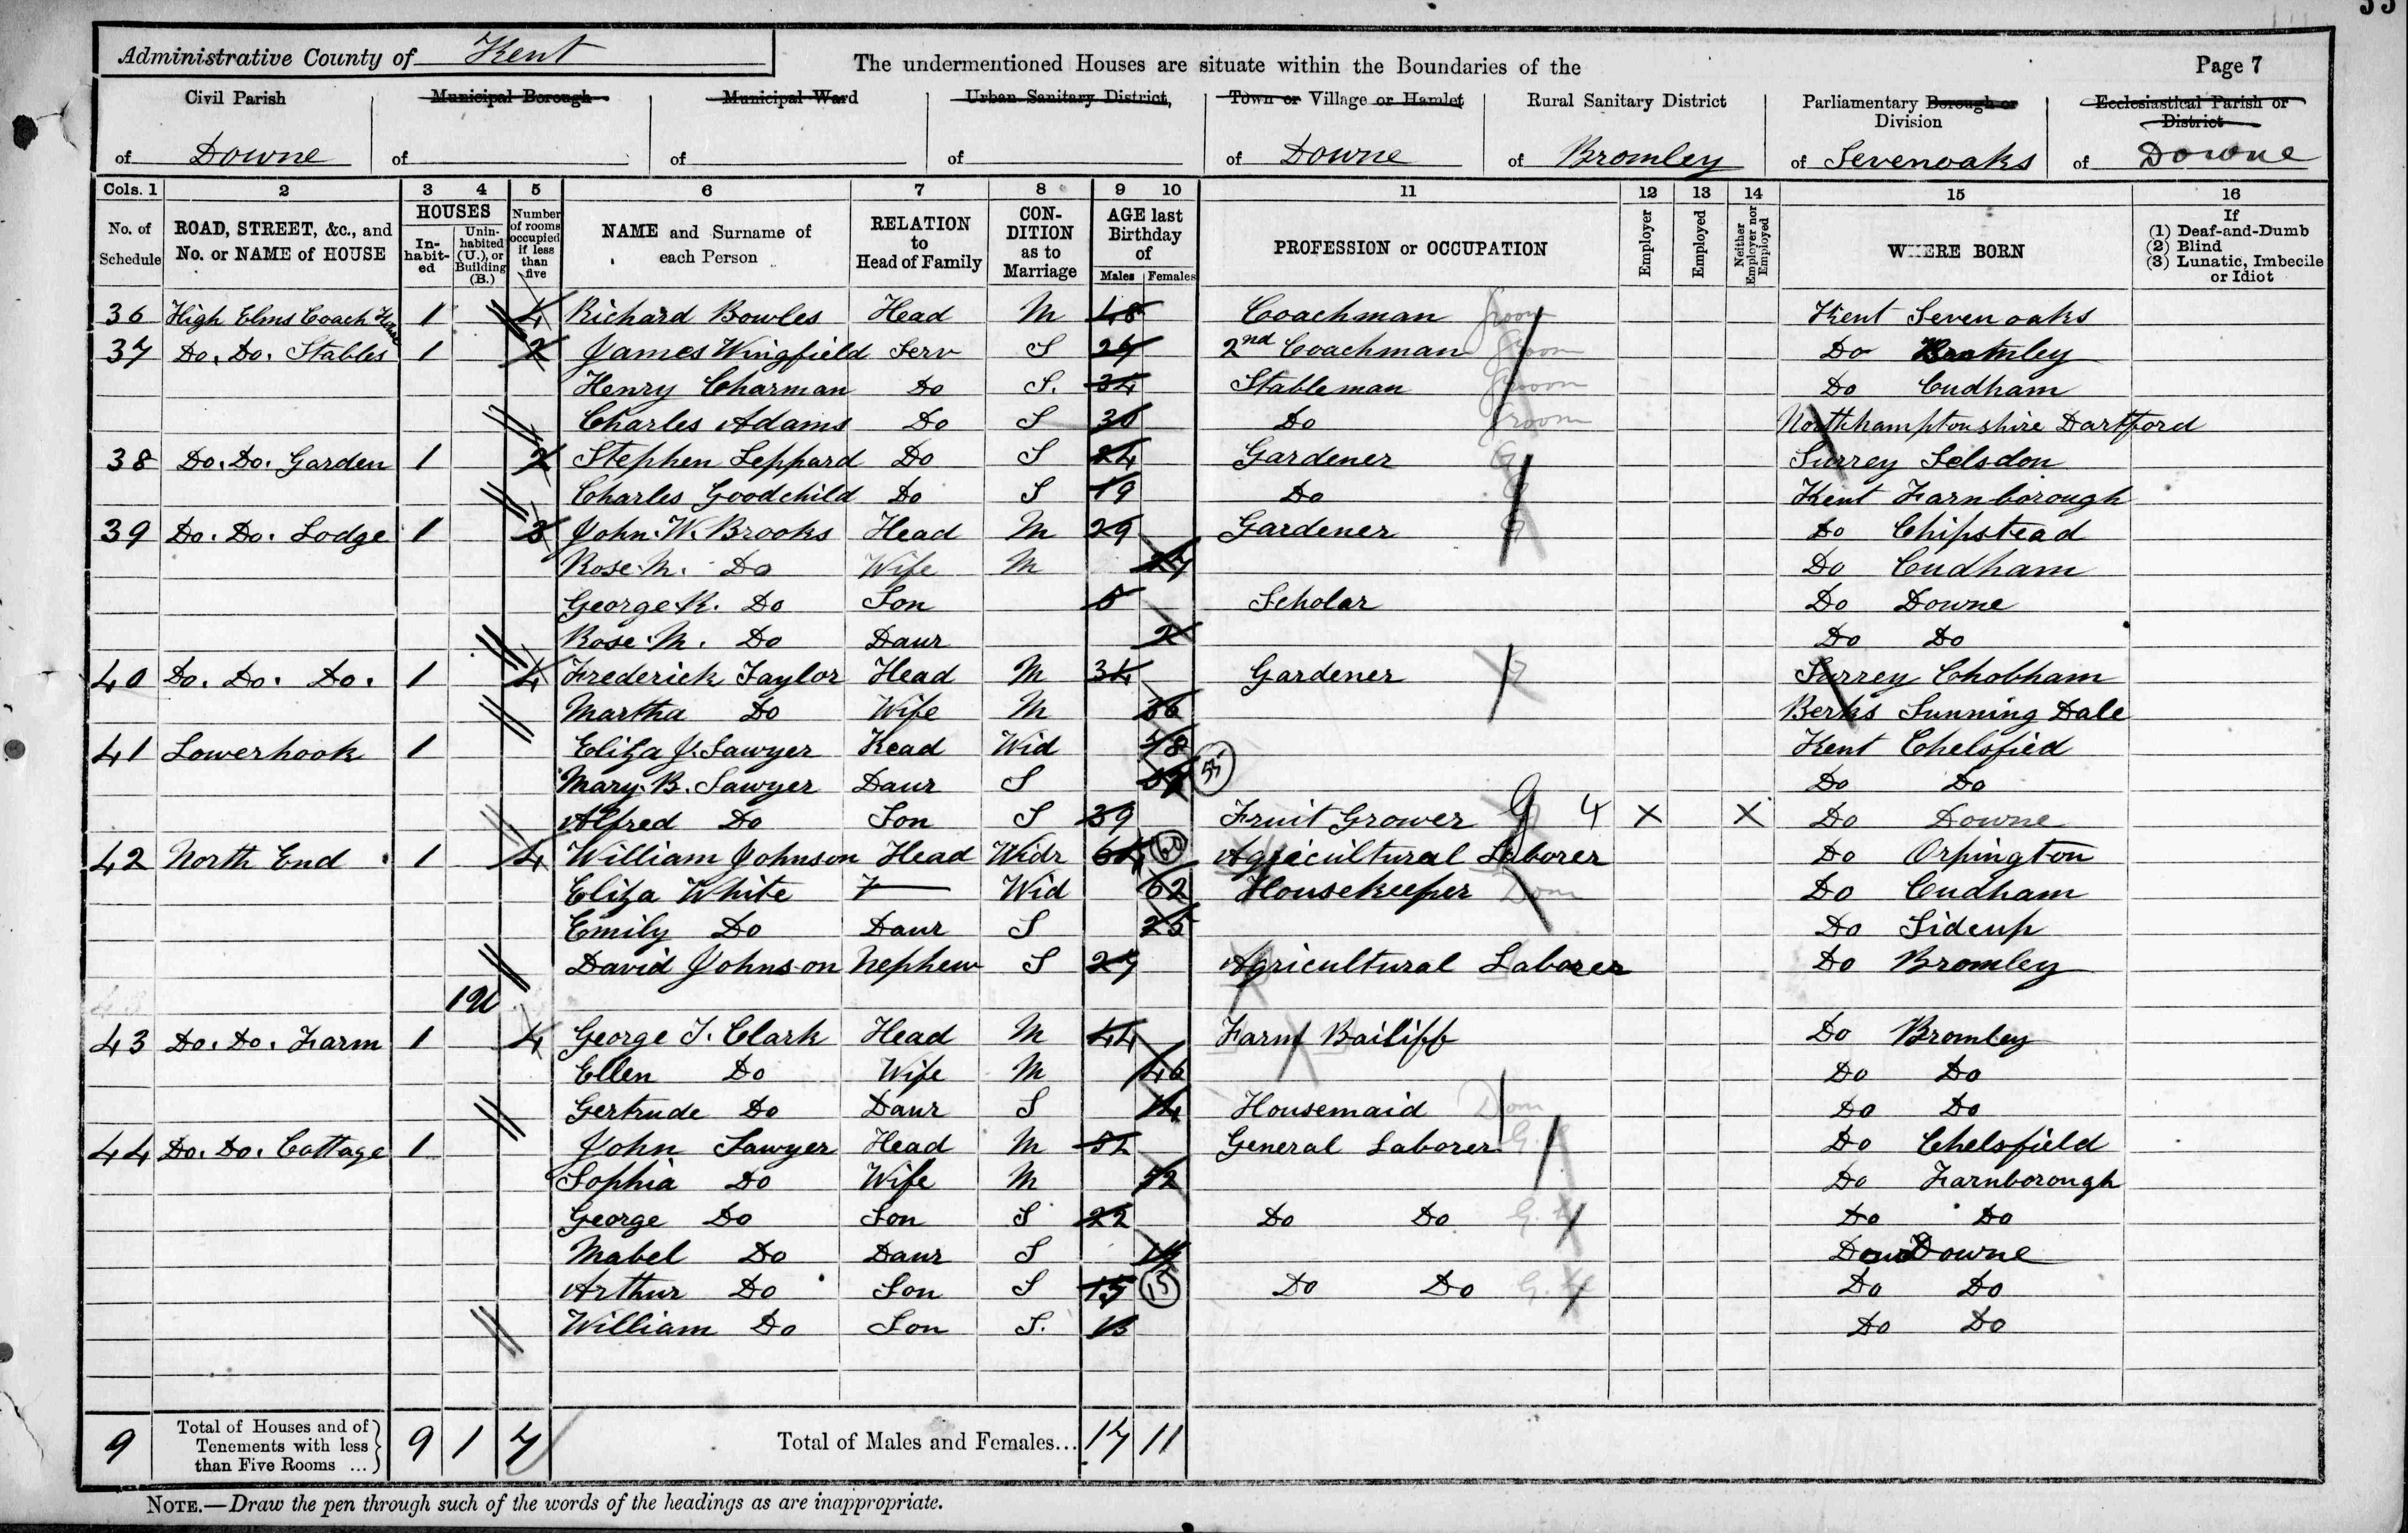 33
Administrative County of Kent
The undermentioned Houses are situate within the Boundaries of the
Page 7
Civil Parish of Downe
Municipal Borough of
Municipal Ward of
Urban Sanitary District, of
Town or Village or Hamlet of Downe
Rural Sanitary District of Bromley
Parliamentary Borough or Division of Sevenoaks
Ecclesiastical Parish or District of Downe
Cols. 1 2 3 4 5 6 7 8 9 10 11 12 13 14 15 16
No. of Schedule
ROAD, STREET, &c., and No. or NAME of HOUSE
HOUSES
In-habit-ed
Unin-habited (U.), or Building (B.)
Number of rooms occupied if less than five
NAME and Surname of each Person
RELATION to Head of Family
CON-DITION as to Marriage
AGE last Birthday of
Males Females
PROFESSION or OCCUPATION
Employer
Employed
Neither Employer nor Employed
WHERE BORN
If (1) Deaf-and-Dumb (2) Blind (3) Lunatic, Imbecile or Idiot
36 High Elms Coach House 1 4 Richard Bowles Head M 48 Coachman Groom Kent Sevenoaks
37 Do. Do. Stables 1 2 James Wingfield Serv S 2nd Coachman Groom Do Bromley
Henry Charman Do S. 34 Stableman Groom Do Cudham
Charles Adams Do S 30 Do Groom Northhamptonshire Dartford
38 Do. Do. Garden 1 2 Stephen Leppard Do S 24 Gardener G Surrey Selsdon
Charles Goodchild Do S 19 Do G Kent Farnborough
39 Do. Do. Lodge 1 3 John. W. Brooks Head M 29 Gardener G Do Chipstead
Rose. M. Do Wife M 27 Do Cudham
George R. Do Son 5 Scholar Do Downe
Rose. M. Do Daur 2 Do Do
40 Do. Do. Do. 1 4 Frederick Taylor Head M 34 Gardener G Surrey Chobham
Martha Do Wife M 36 Berks Sunning Dale
41 Lowerhook 1 Eliza J. Sawyer Head Wid 78 Kent Chelsfied
Mary. B. Sawyer Daur S Do Do
Alfred Do Son S 39 Fruit Grower G 4 X X Do Downe
42 North End 1 4 William Johnson Head Widr 64 60 Agricultural Laborer Do Orpington
Eliza White Wid 62 Housekeeper Dom Do Cudham
Emily Do Daur S 25 Do Sidcup
David Johnson Nephew S 27 Agricultural Laborer Do Bromley
1U
43 Do. Do. Farm 1 4 George T. Clark Head M 44 Farm Bailiff Do Bromley
Ellen Do Wife M 46 Do Do
Gertrude Do Daur S 14 Housemaid Dom Do Do
44 Do. Do. Cottage 1 John Sawyer Head M 52 General Laborer G. Do Chelsfield
Sophia Do Wife M 52 Do Farnborough
George Do Son S 22 Do Do G. Do Do
Mabel Do Daur S Downe
Arthur Do Son S 15 15 Do Do G. Do Do
William Do Son S. 13 Do Do
9 Total of Houses and of Tenements with less than Five Rooms ... 9 1 7 Total of Males and Females... 17 11
NOTE.—Draw the pen through such of the words of the headings as are inappropriate.